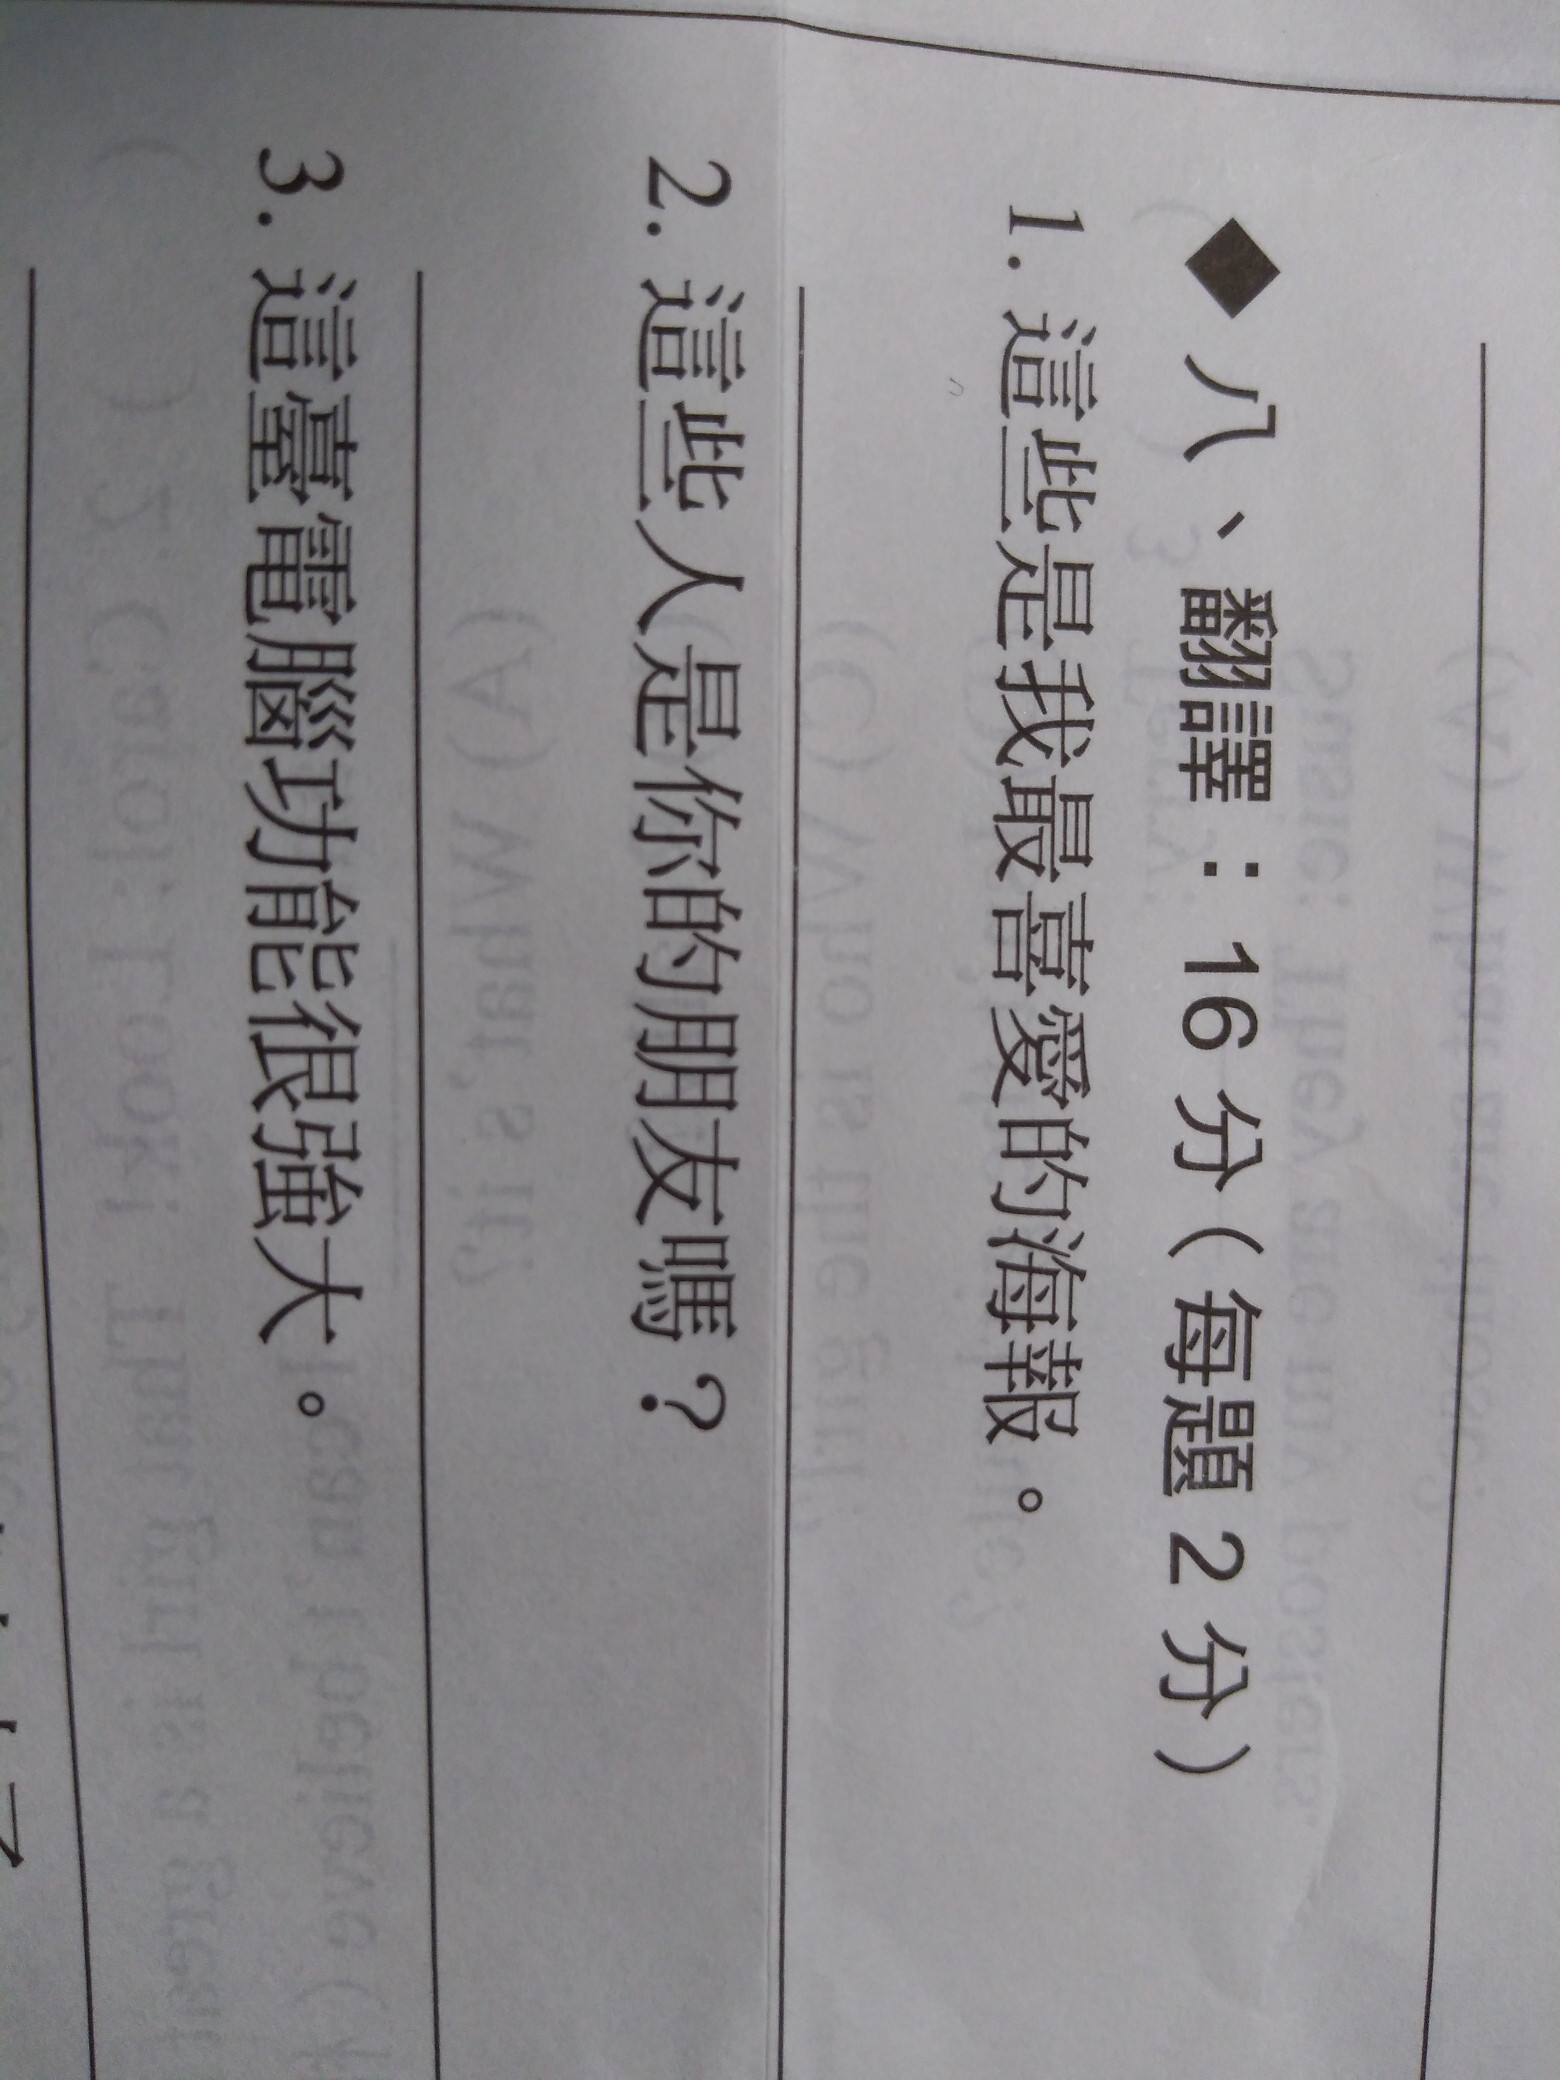 ◆ 八、翻譯：16 分（每題 2 分）
1. 這些是我最喜愛的海報。
2. 這些人是你的朋友嗎？
3. 這臺電腦功能很強大。